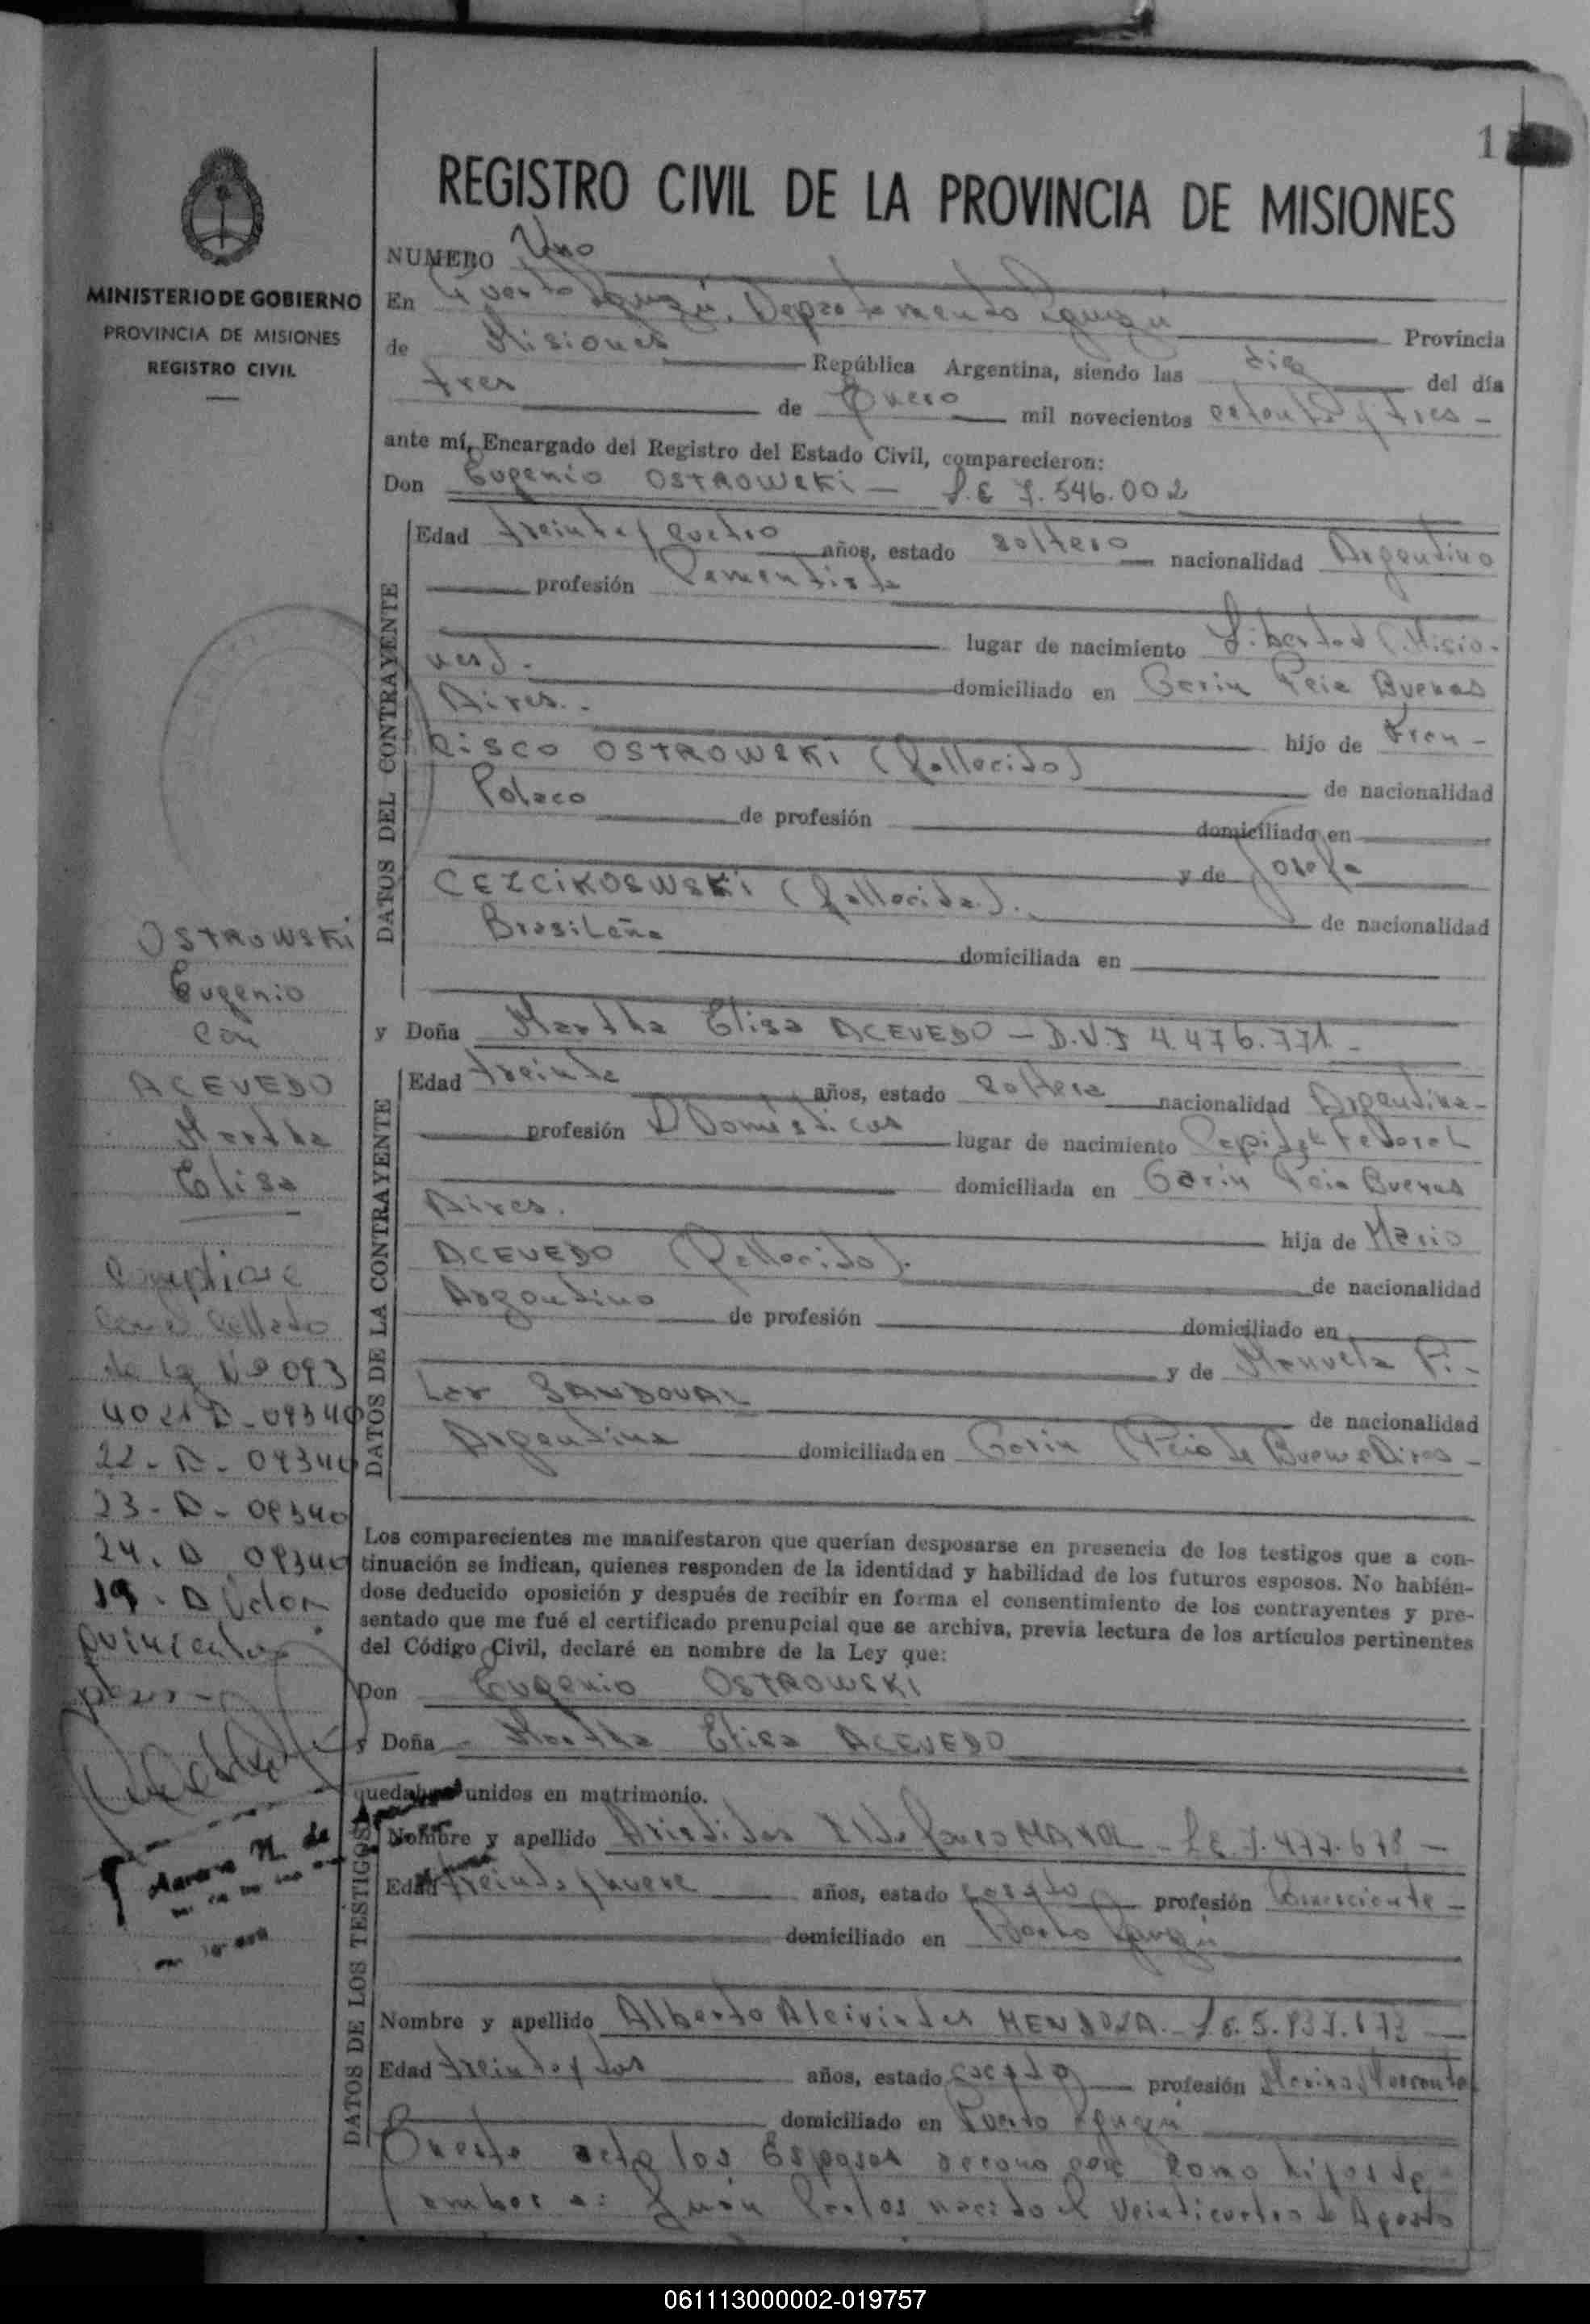 1
REGISTRO CIVIL DE LA PROVINCIA DE MISIONES
MINISTERIO DE GOBIERNO
PROVINCIA DE MISIONES
REGISTRO CIVIL
NUMERO Uno
En Puerto Iguazú, Departamento Iguazú Provincia
de Misiones República Argentina, siendo las diez del día
tres de Enero mil novecientos setenta y tres -
ante mí, Encargado del Registro del Estado Civil, comparecieron:
Don Eugenio OSTROWSKI - L.E 7.546.002
DATOS DEL CONTRAYENTE
Edad treinta y cuatro años, estado soltero nacionalidad Argentino
profesión Cementista
lugar de nacimiento Libertad (Misio-
nes).
domiciliado en Garin Pcia Buenos
Aires.
hijo de Fran-
cisco OSTROWSKI (fallecido)
de nacionalidad
Polaco de profesión domiciliado en
y de Josefa
CEZCIKOSWSKI (fallecida).
de nacionalidad
Brasileña domiciliada en
y Doña Martha Elisa ACEVEDO - D.N.I 4.476.771. -
DATOS DE LA CONTRAYENTE
Edad treinta años, estado soltera nacionalidad Argentina -
profesión Domésticas lugar de nacimiento Capital Federal
domiciliada en Garin Pcia Buenos
Aires.
hija de Mario
ACEVEDO (fallecido).
de nacionalidad
Argentino de profesión domiciliado en
y de Manuela Pi-
lar SANDOVAL
de nacionalidad
Argentina domiciliada en Garin (Pcia de Buenos Aires -
Los comparecientes me manifestaron que querían desposarse en presencia de los testigos que a con-
tinuación se indican, quienes responden de la identidad y habilidad de los futuros esposos. No habién-
dose deducido oposición y después de recibir en forma el consentimiento de los contrayentes y pre-
sentado que me fué el certificado prenupcial que se archiva, previa lectura de los artículos pertinentes
del Código Civil, declaré en nombre de la Ley que:
Don Eugenio OSTROWSKI
y Doña - Martha Elisa ACEVEDO
quedaban unidos en matrimonio.
DATOS DE LOS TESTIGOS
Nombre y apellido Aristides Ildefonso L.E. 7.477.678 -
Edad treinta y nueve años, estado casado profesión Comerciante -
domiciliado en Puerto Iguazú
Nombre y apellido Alberto Alcivides MENDOZA. - L.E. 5.
Edad treinta y dos años, estado casado profesión Marina Mercante
domiciliado en Puerto Iguazú
En este acto los Esposos reconocen como hijos de
ambos a: Juan Carlos nacido el veinticuatro de Agosto
OSTROWSKI
Eugenio
con
ACEVEDO
Martha
Elisa
con el sellado
de ley Nº 093
4021 D - 09340
22 - D - 09340
23 - D - 09340
24. D 09340
19 - D valor
quinientos
pesos
061113000002-019757